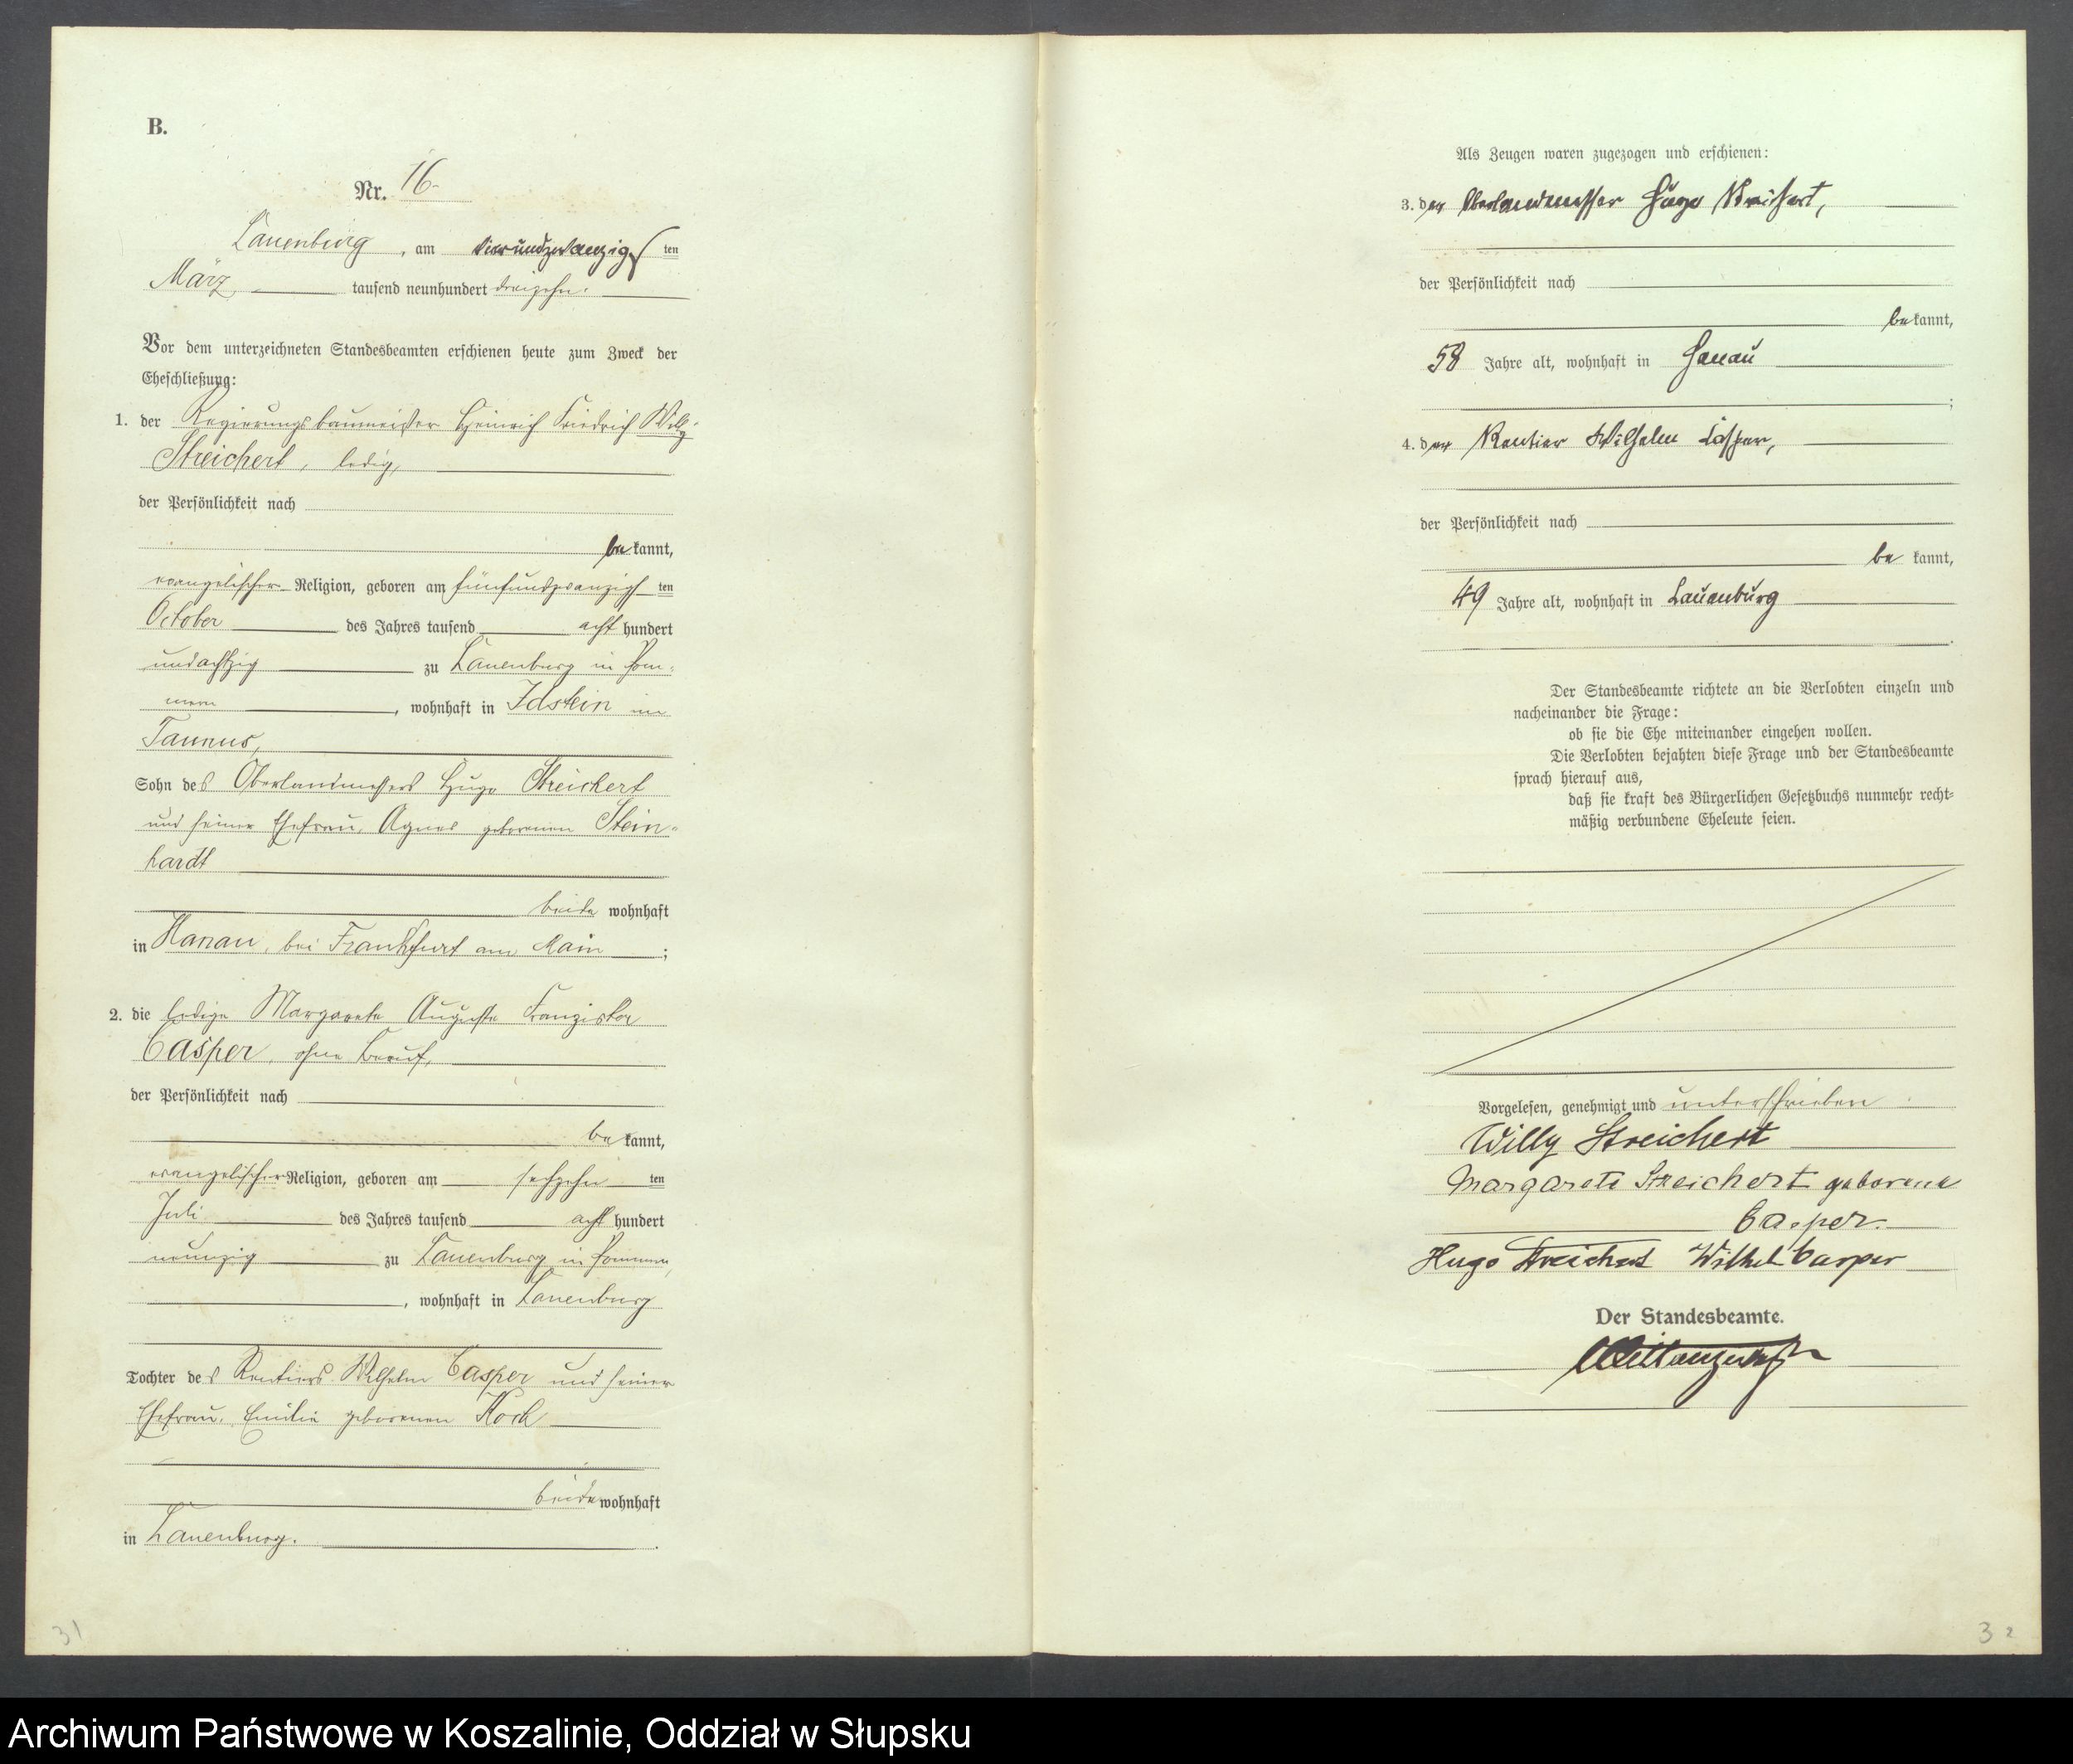 B.
Nr. 16.
Lauenburg, am vierundzwanzigsten
März tausend neunhundert dreizehn.
Vor dem unterzeichneten Standesbeamten erschienen heute zum Zweck der
Eheschließung:
1. der Regierungsbaumeister Heinrich Friedrich Willy
Streichert, ledig,
der Persönlichkeit nach
bekannt,
evangelischer Religion, geboren am fünfundzwanzigsten
October des Jahres tausend acht hundert
undachtzig zu Lauenburg in Pom-
mern, wohnhaft in Idstein im
Taunus,
Sohn des Oberlandmessers Hugo Streichert
und seiner Ehefrau, Agnes geborenen Stein-
hardt
beide wohnhaft
in Hanau, bei Frankfurt am Main;
2. die ledige Margarete Auguste Franziska
Casper, ohne Beruf,
der Persönlichkeit nach
bekannt,
evangelischer Religion, geboren am sechzehnten
Juli des Jahres tausend acht hundert
neunzig zu Lauenburg in Pommern,
, wohnhaft in Lauenburg
Tochter des Rentiers Wilhelm Casper und seiner
Ehefrau, Emilie geborenen Koch
beide wohnhaft
in Lauenburg.
31
Als Zeugen waren zugezogen und erschienen:
3. der Oberlandmesser Hugo Streichert,
der Persönlichkeit nach
bekannt,
58 Jahre alt, wohnhaft in Hanau
;
4. der Rentier Wilhelm Casper,
der Persönlichkeit nach
bekannt,
49 Jahre alt, wohnhaft in Lauenburg
.
Der Standesbeamte richtete an die Verlobten einzeln und
nacheinander die Frage:
ob sie die Ehe miteinander eingehen wollen.
Die Verlobten bejahten diese Frage und der Standesbeamte
sprach hierauf aus,
daß sie kraft des Bürgerlichen Gesetzbuchs nunmehr recht-
mäßig verbundene Eheleute seien.
Vorgelesen, genehmigt und unterschrieben
Willy Streichert
Margarete Streichert geborene
Casper.
Hugo Streichert Wilhelm Casper
Der Standesbeamte.
32
Archiwum Państwowe w Koszalinie, Oddział w Słupsku